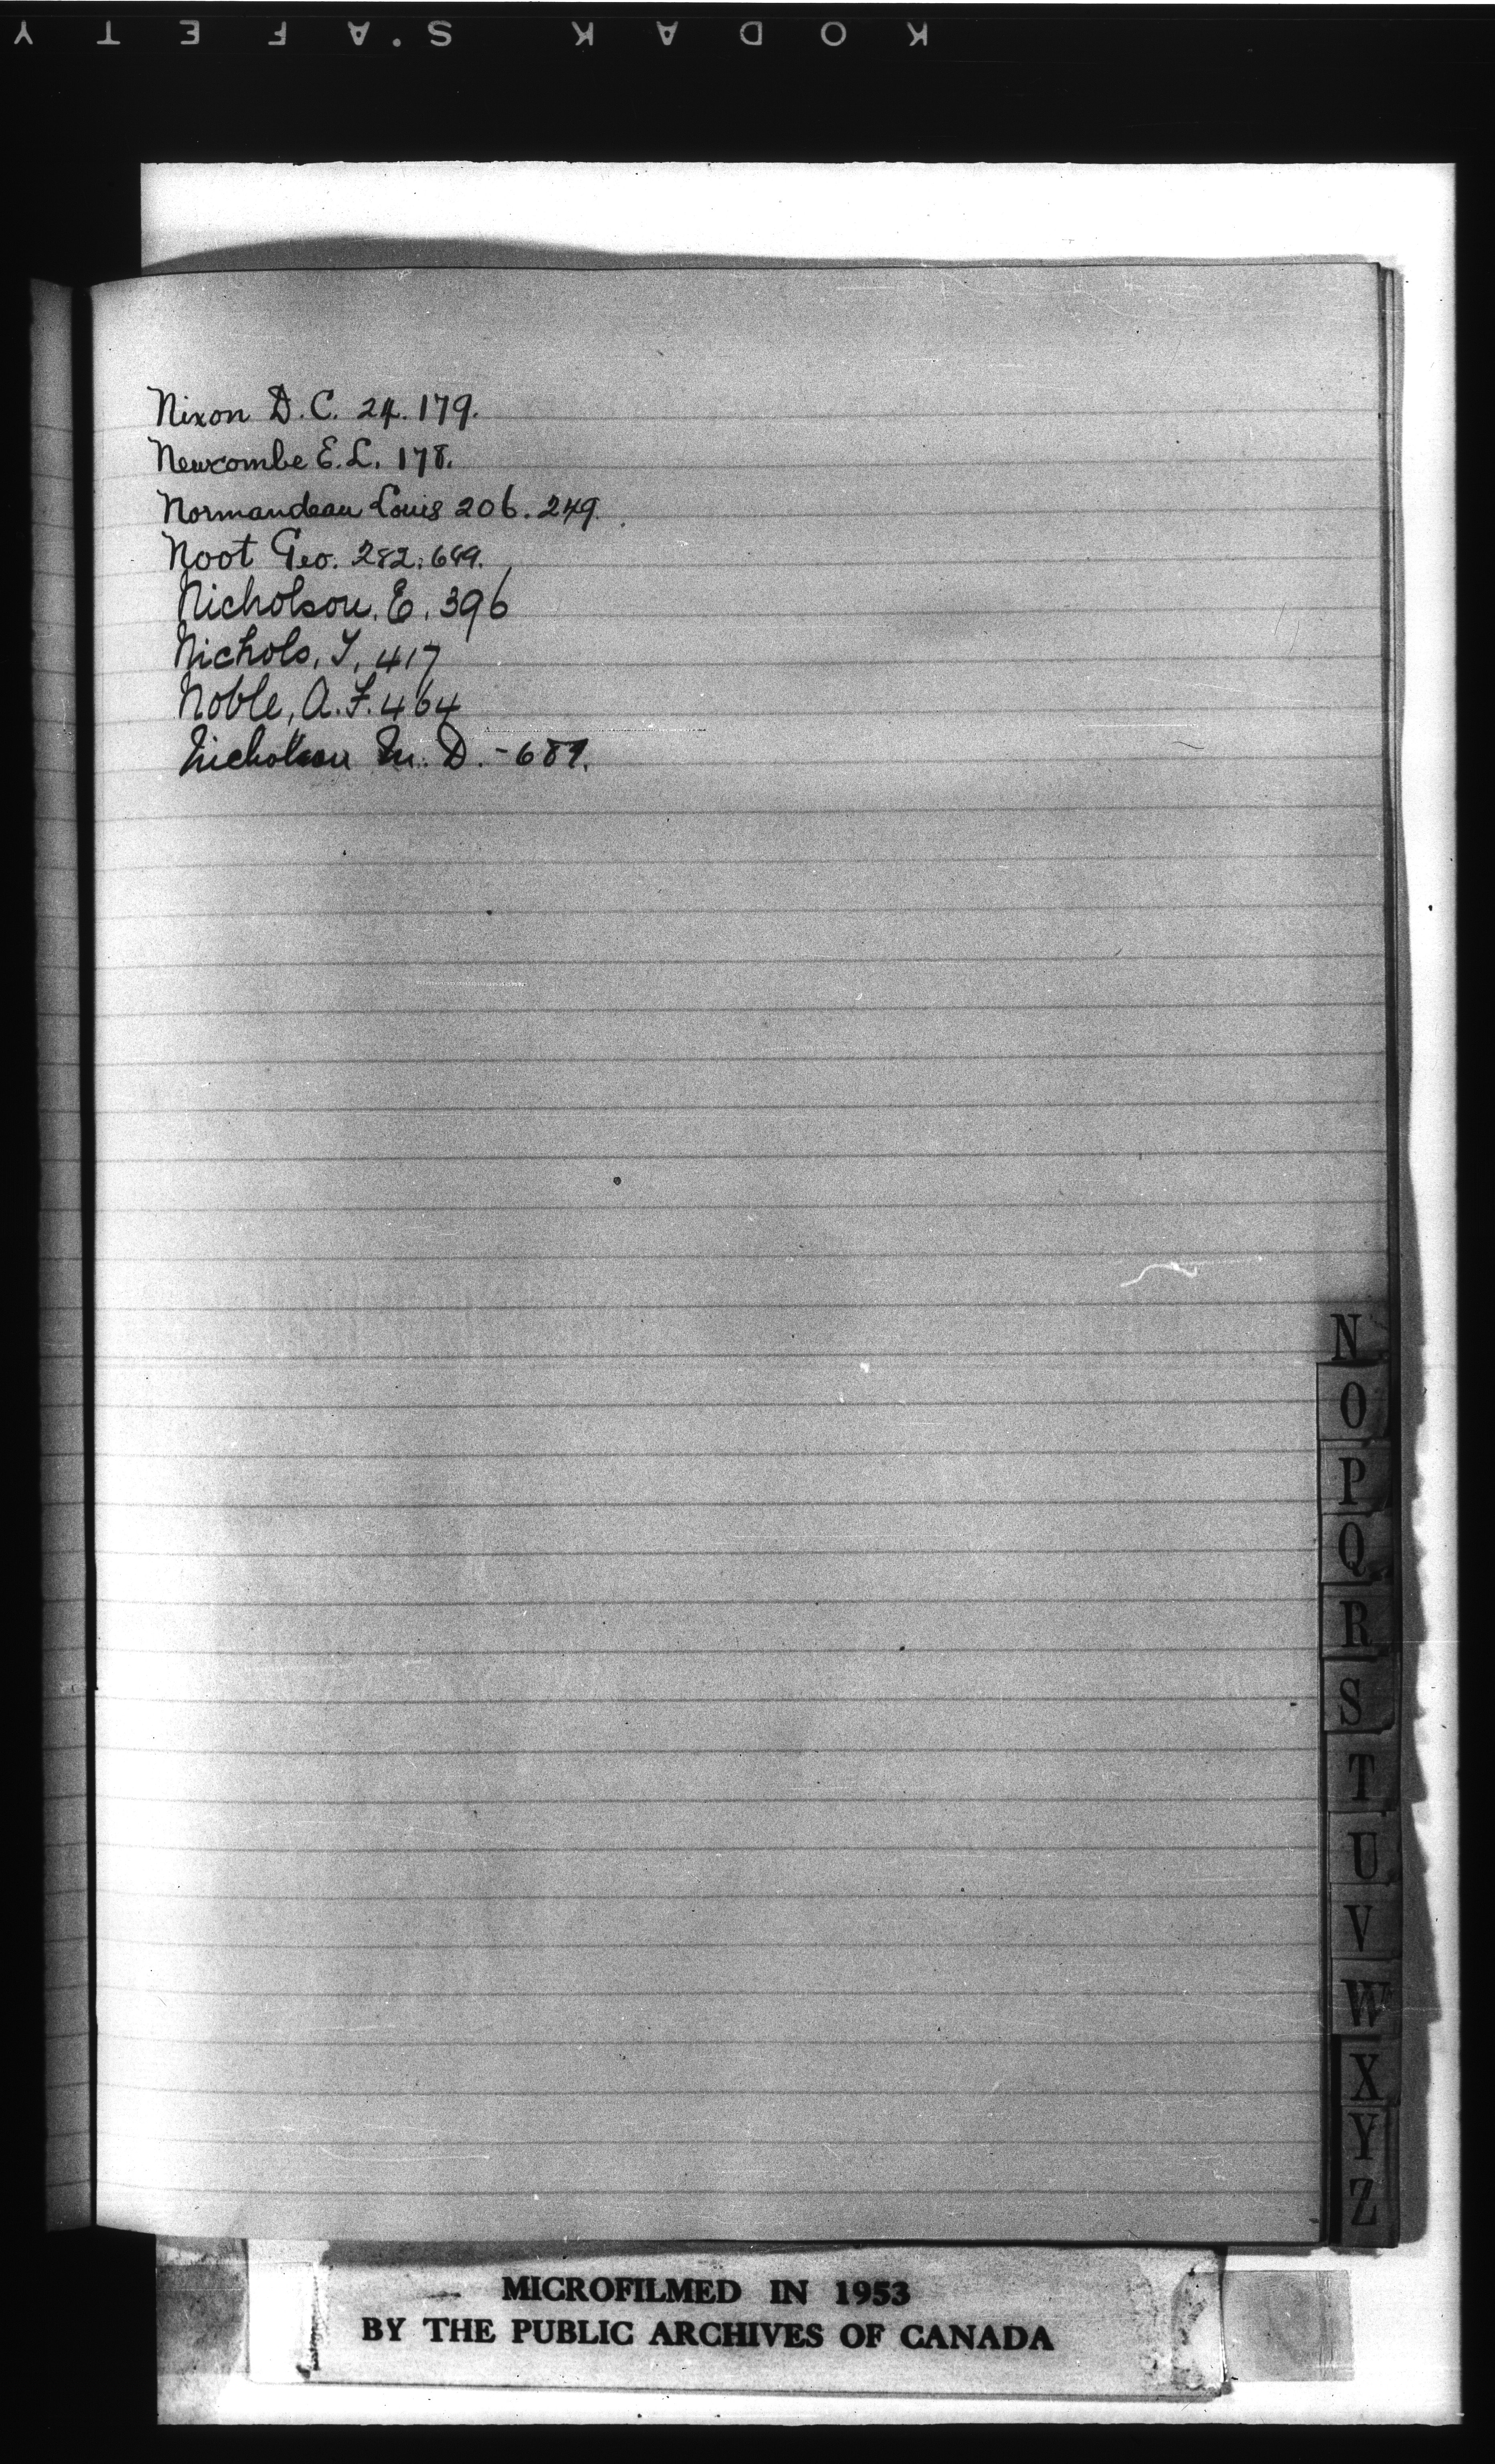 KODAK SAFETY
Nixon D. C. 24. 179.
Newcombe E. L. 178.
Normandeau Louis 206. 249.
Noot Geo. 282. 689.
Nicholson, E. 396
Nichols, T. 417
Noble, A. F. 464
Nicholson M. D. - 689.
N
O
P
Q
R
S
T
U
V
W
X
Y
Z
MICROFILMED IN 1953
BY THE PUBLIC ARCHIVES OF CANADA